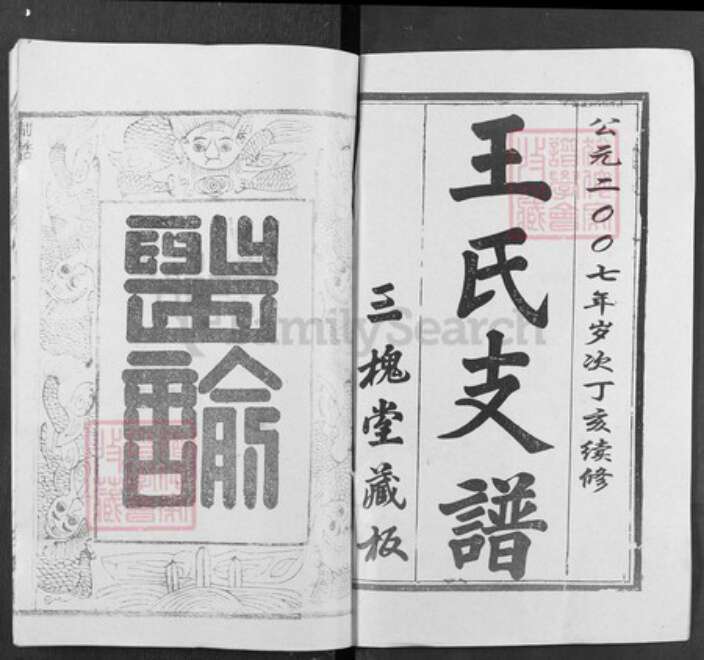 公元二〇〇七年岁次丁亥续修
王氏支譜
三槐堂藏板
諭
FamilySearch